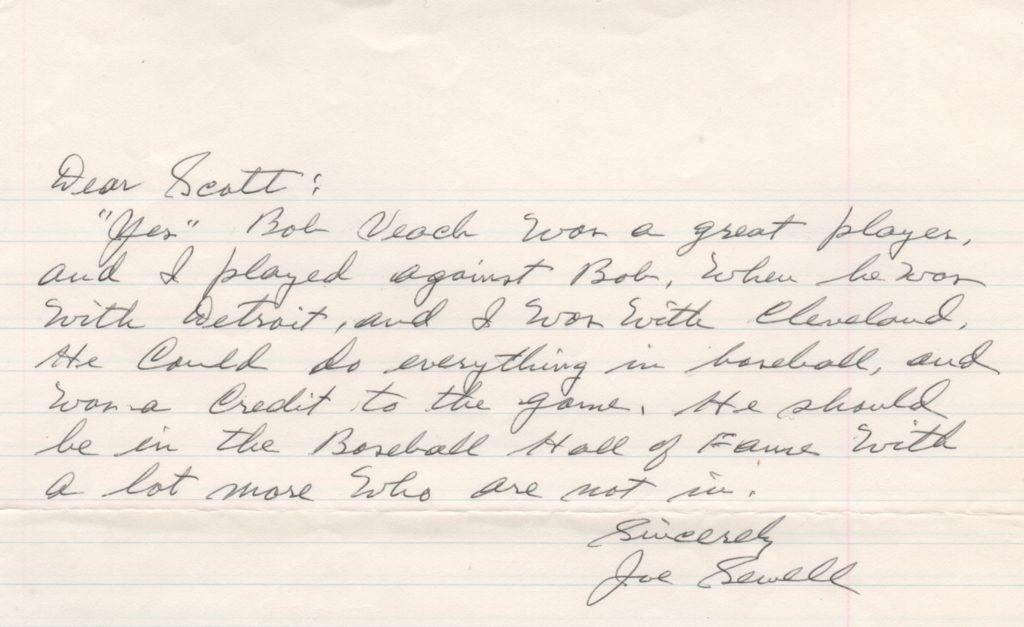 Dear Scott:
"Yes" Bob Veach was a great player,
and I played against Bob, when he was
with Detroit, and I was with Cleveland.
He could do everything in baseball, and
was a credit to the game. He should
be in the Baseball Hall of Fame with
a lot more who are not in.
Sincerely
Joe Sewell